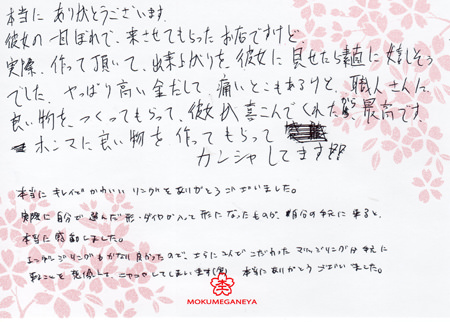 本当に ありがとうございます.
彼女の一目ぼれで、来させてもらったお店ですけど
実際、作って頂いて、出来上がりを、彼女に見せたら素直に嬉しそう
でした. やっぱり高い金だして、痛いとこもあるけど、職人さんに、
良い物を、つくってもらって、彼女が喜こんでくれたから、最高です.
ホンマに良い物を作ってもらって
カンシャしてます!!
本当にキレイでかわいいリングをありがとうございました。
実際に自分で選んだ形・ダイヤが入って形になったものが、自分の手元に来ると、
本当に感動しました。
エンゲージリングもかなり良かったので、さらに2人でこだわったマリッジリングが手元に
来ることを想像して、ニヤついてしまいます(笑) 本当にありがとうございました。
MOKUMEGANEYA